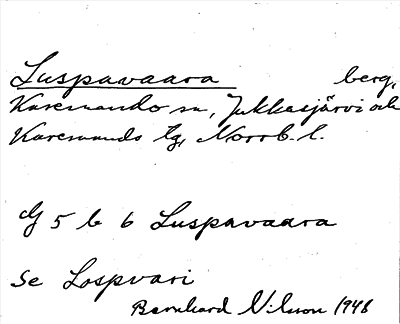 Luspavaara berg,
Karesuando sn, Jukkasjärvi och
Karesuando tg, Norrb. l.
5 b 6 Luspavaara
Se Lospvari
Bernhard Nilsson 1948